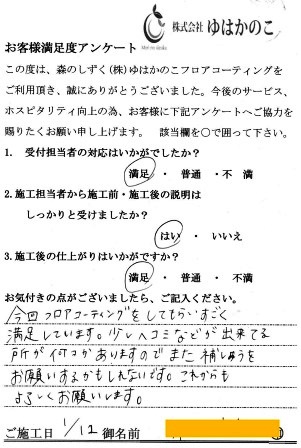 株式会社 ゆはかのこ
お客様満足度アンケート
この度は、森のしずく(株)ゆはかのこフロアコーティングを
ご利用頂き、誠にありがとうございました。今後のサービス、
ホスピタリティ向上の為、お客様に下記アンケートへご協力を
賜りたくお願い申し上げます。 該当欄を○で囲って下さい。
1. 受付担当者の対応はいかがでしたか?
満足 ・ 普通 ・ 不 満
2.施工担当者から施工前・施工後の説明は
しっかりと受けましたか?
はい ・ いいえ
3.施工後の仕上がりはいかがですか?
満足 ・ 普通 ・ 不満
お気付きの点がございましたら、ご記入ください。
今回フロアコーティングをしてもらいすごく
満足しています。少しヘコミなどが出来てる
所が何コかありますのでまた補しゅうを
お願いするかもしれないです。これからも
よろしくお願いします。
ご施工日 1/12 御名前